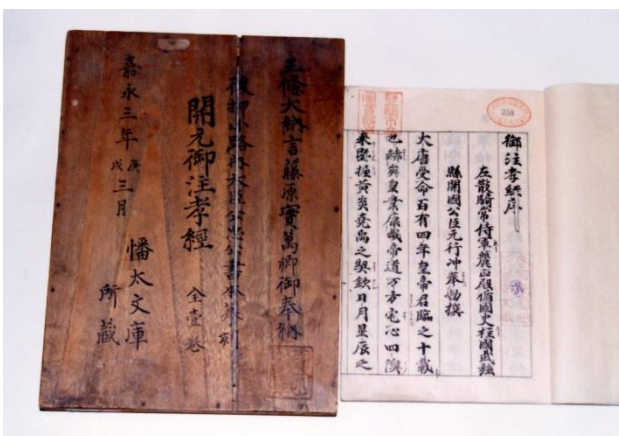 三條大納言藤原實萬卿御奉納
開元御注孝經 全壹卷
嘉永三年庚戌三月
幡太文庫
所藏
御注孝經序
左散騎常侍兼麗正殿脩國史柱國武強
縣開國公臣元行沖奉勅撰
大唐受命百有四年皇帝君臨之十載
也赫奕皇業康哉帝道万方宅心四隩
来曁揖黄炎堯禹之
欽日月星辰之